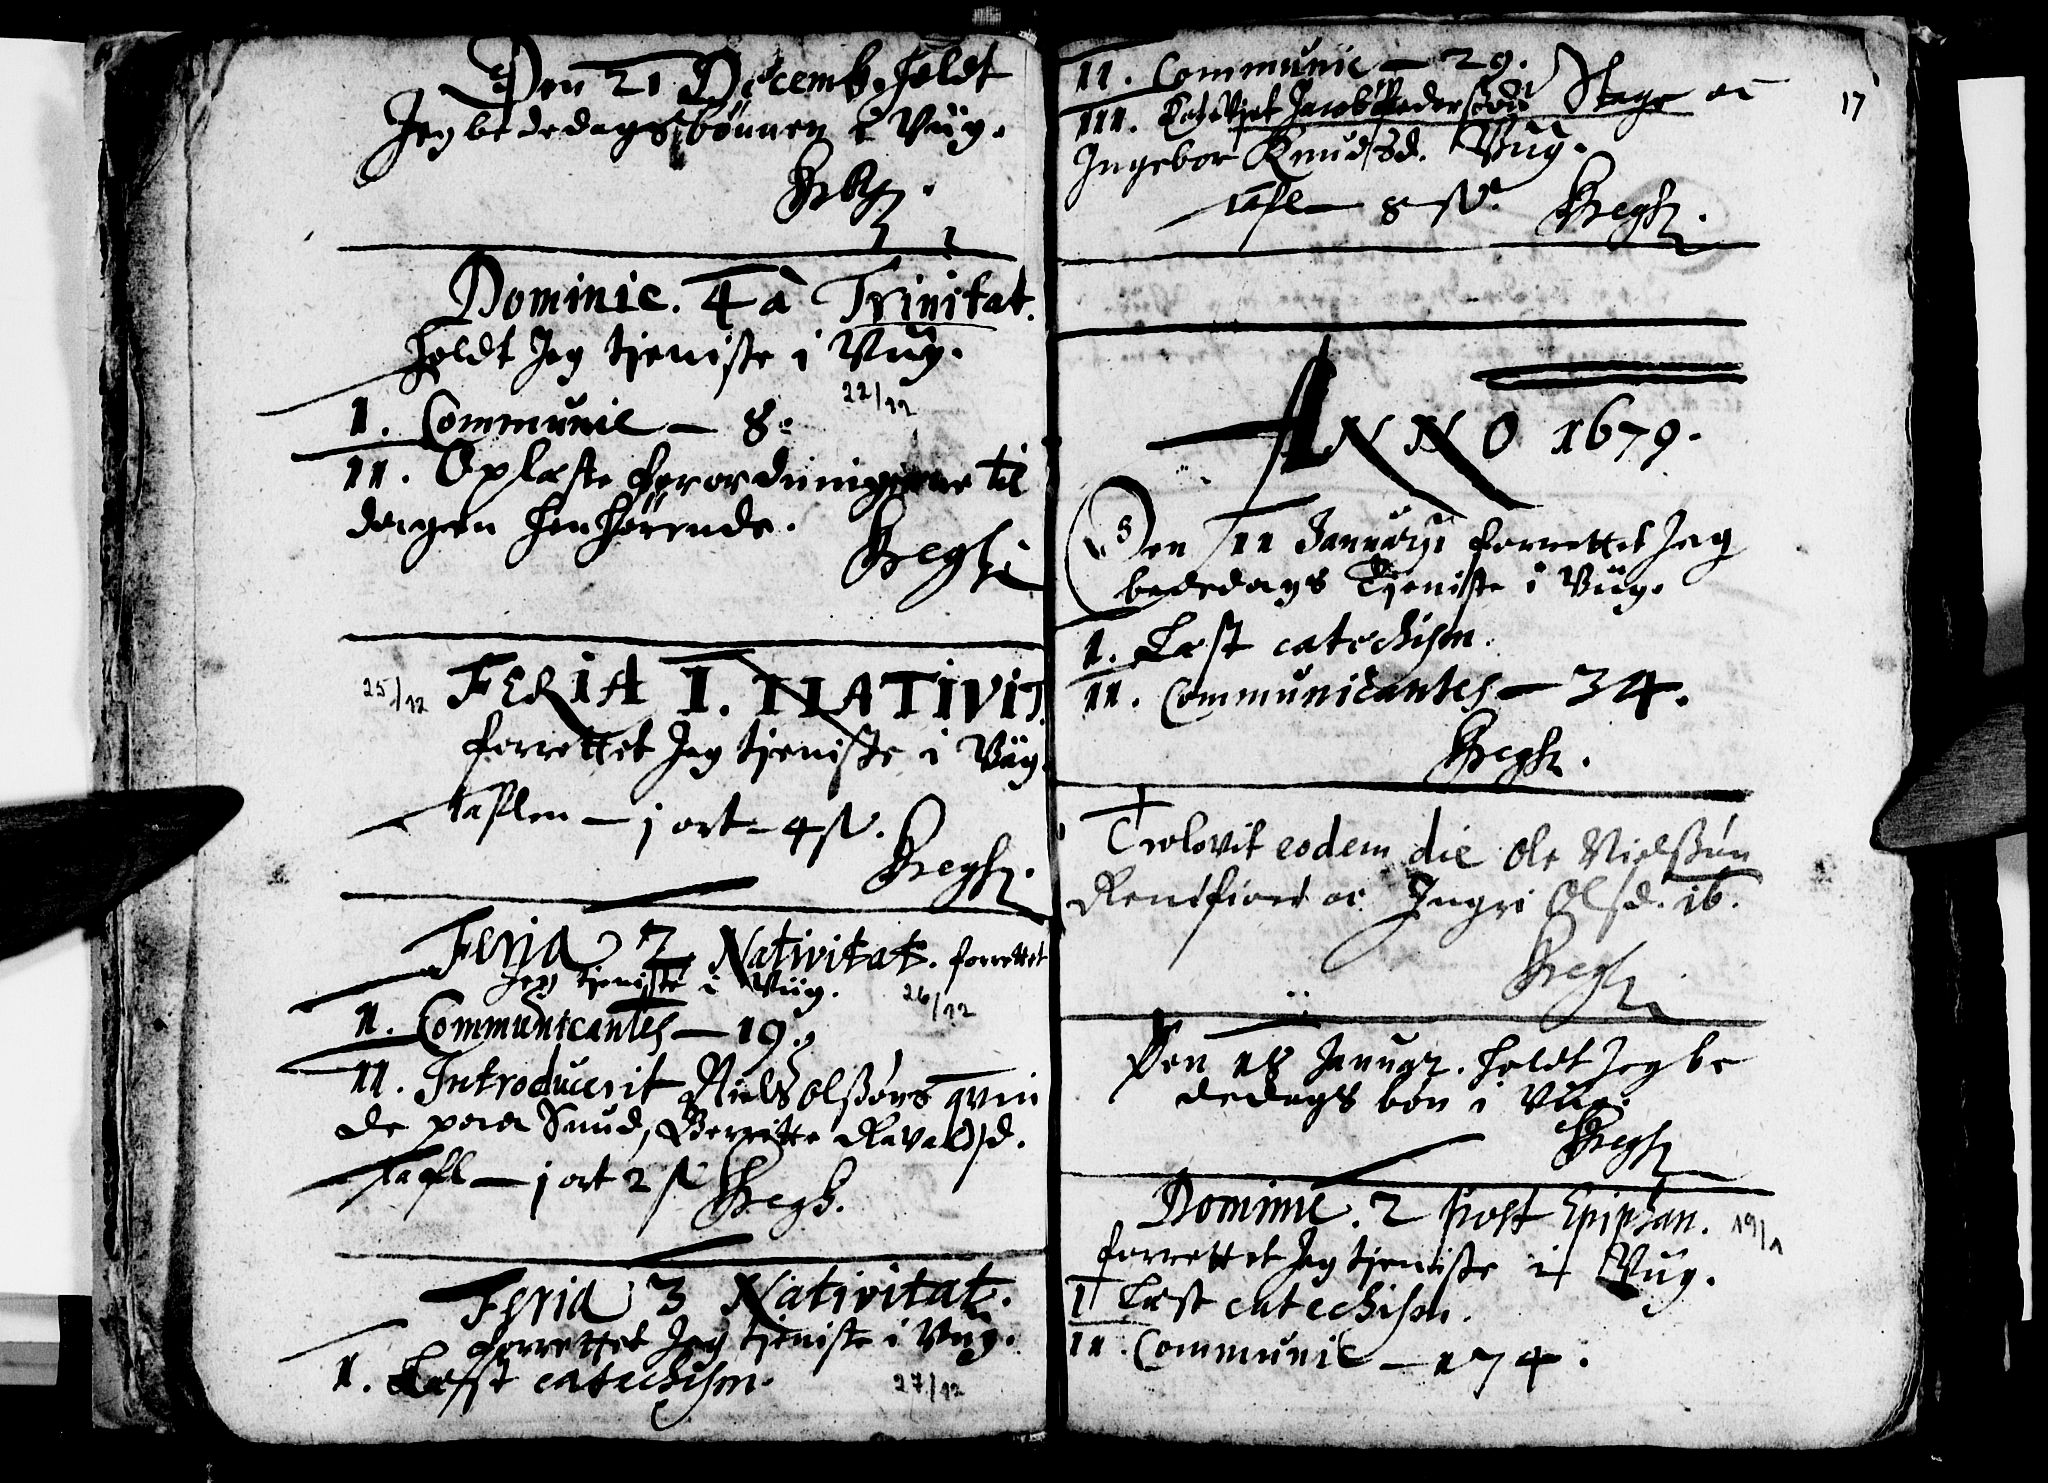 Den 21 Decemb. holdt
Jeg bededagsbønnen i Vüg.
Dominic. 4 a Trinitat.
holdt Jeg tjeniste i Vüg.
22/12
I. Communic — 8.
II. Oplæste forordningerne til
dagen henhørende.
25/12 FERIA I. NATIVIT.
forrettet Jeg tjeniste i Vüg.
taflen — j ort - 4 sk.
Feria 2 Nativitat. forrettet
Jeg tjeniste i Vüg. 26/12
I. Communicantes — 19.
II. Introducerit Niels Olßøns qvin
de paa Sund, Berritte
Tafl — j ort 2 sk
Feria 3 Nativitat.
forrettet Jeg tjeniste i Vüg.
I. Læst catechism. 27/12
17
II. Communic — 29.
III. Jacob Pedersøn Stage oc
Ingebor Knudsd. Vüg.
tafl — 8 sk.
ANNO 1679.
Den 11 Januarij forrettet Jeg
bededags Tjeniste i Vüg.
I. Læst catechism.
II. Communicantes — 34.
Trolovit eodem die Ole Nielßøn
oc Ingri Olsd. ib.
Den 18 Januar. holdt Jeg be
dedags bøn i Vüg.
Dominic. 2 post Epiphan. 19/1
forrettet Jeg tjeniste i Vüg.
I Læst catechism.
II. Communic — 174.